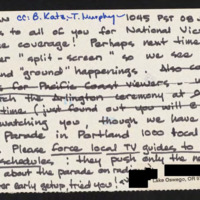 cc: B. Katz, T. Murphy 1045 PST 08
s to all of you for National Vie
e coverage! Perhaps next time
er "split-screen" so we see
nd "ground" happenings. Also
for Pacific Coast viewers
ch the Arlington ceremony at
time (just found out you will
watching you, though we have
Parade in Portland 1000 total
Please force local TV guides to
schedules; they push only the
about the parade on radio
or early setup, tried you!
Lake Oswego, OR